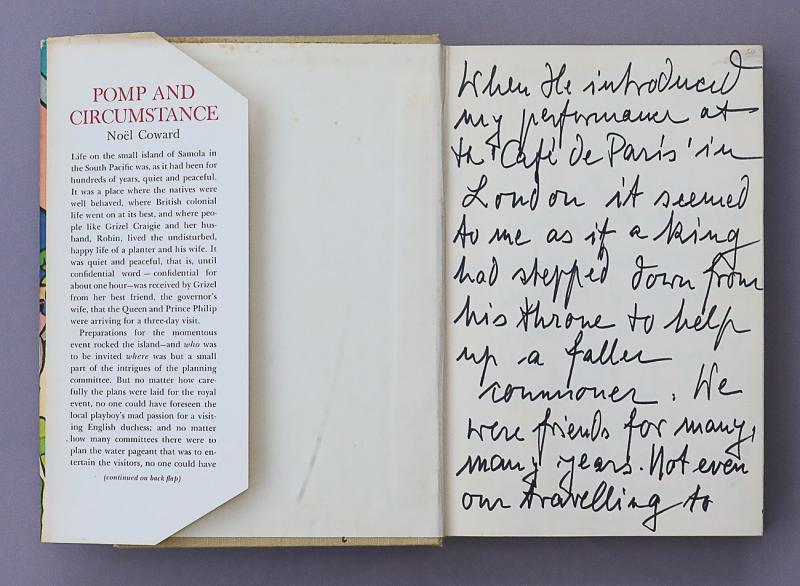 POMP AND
CIRCUMSTANCE
Noël Coward
Life on the small island of Samola in
the South Pacific was, as it had been for
hundreds of years, quiet and peaceful.
It was a place where the natives were
well behaved, where British colonial
life went on at its best, and where peo-
ple like Grizel Craigie and her hus-
band, Robin, lived the undisturbed,
happy life of a planter and his wife. It
was quiet and peaceful, that is, until
confidential word – confidential for
about one hour—was received by Grizel
from her best friend, the governor's
wife, that the Queen and Prince Philip
were arriving for a three-day visit.
Preparations for the momentous
event rocked the island—and who was
to be invited where was but a small
part of the intrigues of the planning
committee. But no matter how care-
fully the plans were laid for the royal
event, no one could have foreseen the
local playboy's mad passion for a visit-
ing English duchess; and no matter
how many committees there were to
plan the water pageant that was to en-
tertain the visitors, no one could have
(continued on back flap)
When He introduced
my performance at
the 'Café de Paris' in
London it seemed
to me as if a king
had stepped down from
his throne to help
up a fallen
commoner. We
were friends for many,
many years. Not even
our travelling to